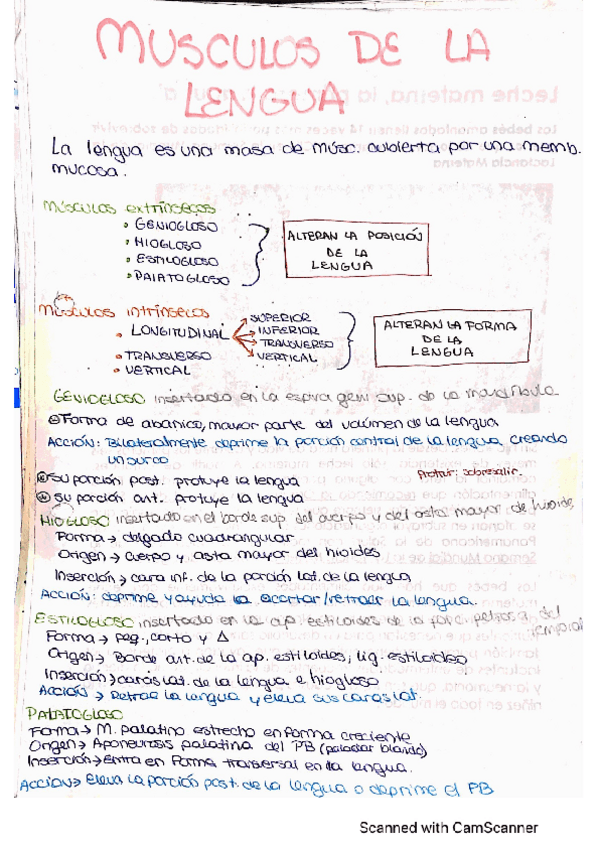 MUSCULOS DE LA
LENGUA
La lengua es una masa de músc. cubierta por una memb.
mucosa.
Músculos extrínsecos
• GENIOGLOSO
• HIOGLOSO
• ESTILOGLOSO
• PALATOGLOSO
ALTERAN LA POSICIÓN
DE LA
LENGUA
Músculos intrínsecos
• LONGITUDINAL
SUPERIOR
INFERIOR
TRANSVERSO
VERTICAL
• TRANSVERSO
• VERTICAL
ALTERAN LA FORMA
DE LA
LENGUA
GENIOGLOSO insertado en la espina geni sup. de la mandíbula
Forma de abanico, mayor parte del volúmen de la lengua
ACCIÓN: Bilateralmente deprime la porción central de la lengua, creando
un surco
su porción post. protuye la lengua
Protuir: sobresalir.
su porción ant. protuye la lengua
HIOGLOSO insertado en el borde sup. del cuerpo y del asta mayor de hioide
Forma → delgado cuadrangular
Origen → cuerpo y asta mayor del hioides
Inserción → cara inf. de la porción lat. de la lengua
ACCIÓN: deprime y ayuda a acortar/retraer la lengua.
ESTILOGLOSO insertado en la ap. estiloides de la porc. petrosa del temporal
Forma → peq., corto y Δ
Origen → Borde ant. de la ap. estiloides, lig. estiloideo
Inserción → caras lat. de la lengua e hiogloso
ACCIÓN → Retrae la lengua y eleva sus caras lat.
PALATOGLOSO
Forma → M. palatino estrecho en forma creciente
Origen → Aponeurosis palatina del PB (paladar blando)
Inserción → Entra en forma transversal en la lengua.
Acción → Eleva la porción post. de la lengua o deprime el PB
Scanned with CamScanner